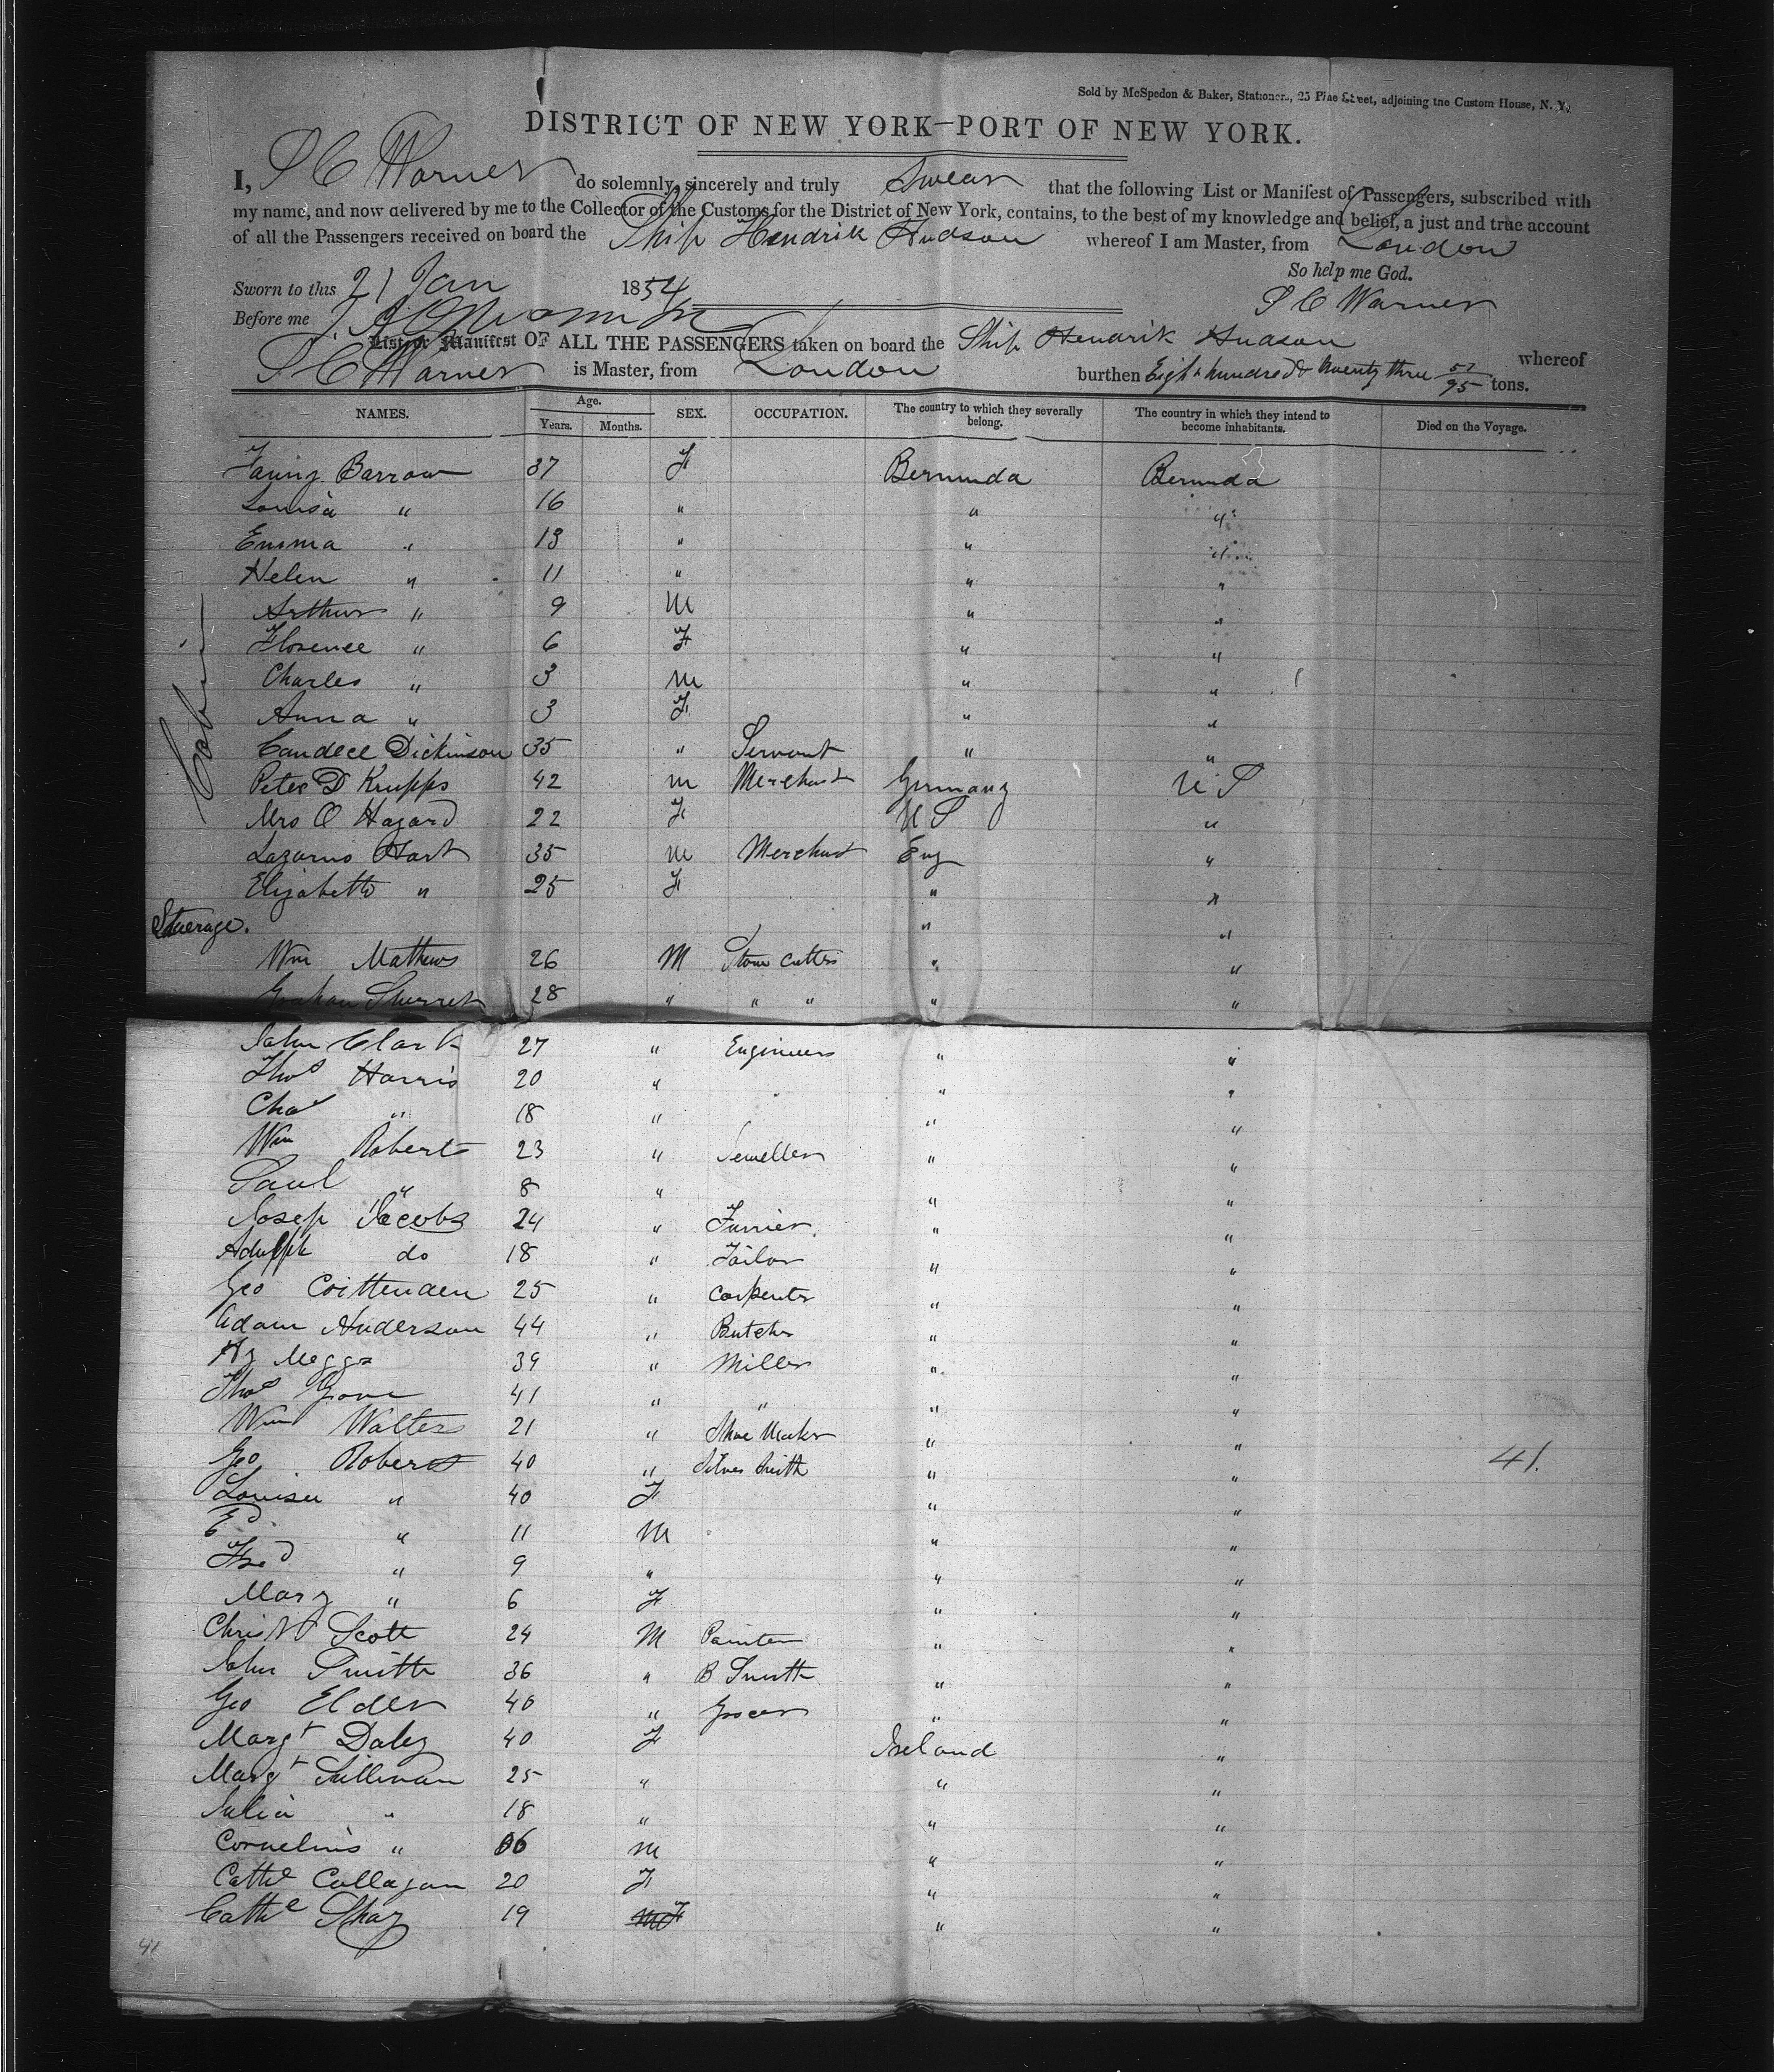 Sold by McSpedon & Baker, Stationers, 25 Pine Street, adjoining the Custom House, N. Y.
DISTRICT OF NEW YORK—PORT OF NEW YORK.
I, S C Warner do solemnly, sincerely and truly Swear that the following List or Manifest of Passengers, subscribed with
my name, and now delivered by me to the Collector of the Customs for the District of New York, contains, to the best of my knowledge and belief, a just and true account
of all the Passengers received on board the Ship Hendrik Hudson whereof I am Master, from London
So help me God.
Sworn to this 21 Jan 1854
S C Warner
Before me
List or Manifest OF ALL THE PASSENGERS taken on board the Ship Hendrik Hudson whereof
S C Warner is Master, from London burthen Eight hundred & twenty three 57/95 tons.
NAMES. Age. Years. Months. SEX. OCCUPATION. The country to which they severally belong. The country in which they intend to become inhabitants. Died on the Voyage.
Cabin
Fanny Barrow 37 F Bermuda Bermuda
Louisa " 16 " " "
Emma " 13 " " "
Helen " 11 " " "
Arthur " 9 M " "
Florence " 6 F " "
Charles " 3 M " "
Anna " 3 F " "
Candece Dickinson 35 " Servant " "
Peter D Krupps 42 M Merchant Germany U S
Mrs O Hazard 22 F U S "
Lazarus Hart 35 M Merchant Eng "
Elizabeth " 25 F " "
Steerage. " "
Wm Mathews 26 M Stone Cutter " "
Graham 28 " " " " "
John Clark 27 " Engineer " "
Thos Harris 20 " " "
Chas " 18 " " "
Wm Roberts 23 " Jeweller " "
Saul " 8 " " "
Josep Jacobs 24 " Furrier " "
Adolph do 18 " Tailor " "
Geo Crittenden 25 " Carpenter " "
Adam Anderson 44 " Butcher " "
Hy Meggs 39 " Miller " "
Thos 41 " " " "
Wm Walter 21 " Shoe Maker " "
Geo Roberts 40 " Silver Smith " " 41.
Louisa " 40 F " "
Ed " 11 M " "
Fred " 9 " " "
Mary " 6 F " "
Christr Scott 24 M Painter " "
John Smith 36 " B Smith " "
Geo Elder 40 " Grocer " "
Margt Daley 40 F Ireland "
Margt Sullivan 25 " " "
Julia " 18 " " "
Cornelius " 06 M " "
Cathe Callagan 20 F " "
Cathe Shay 19 F " "
41